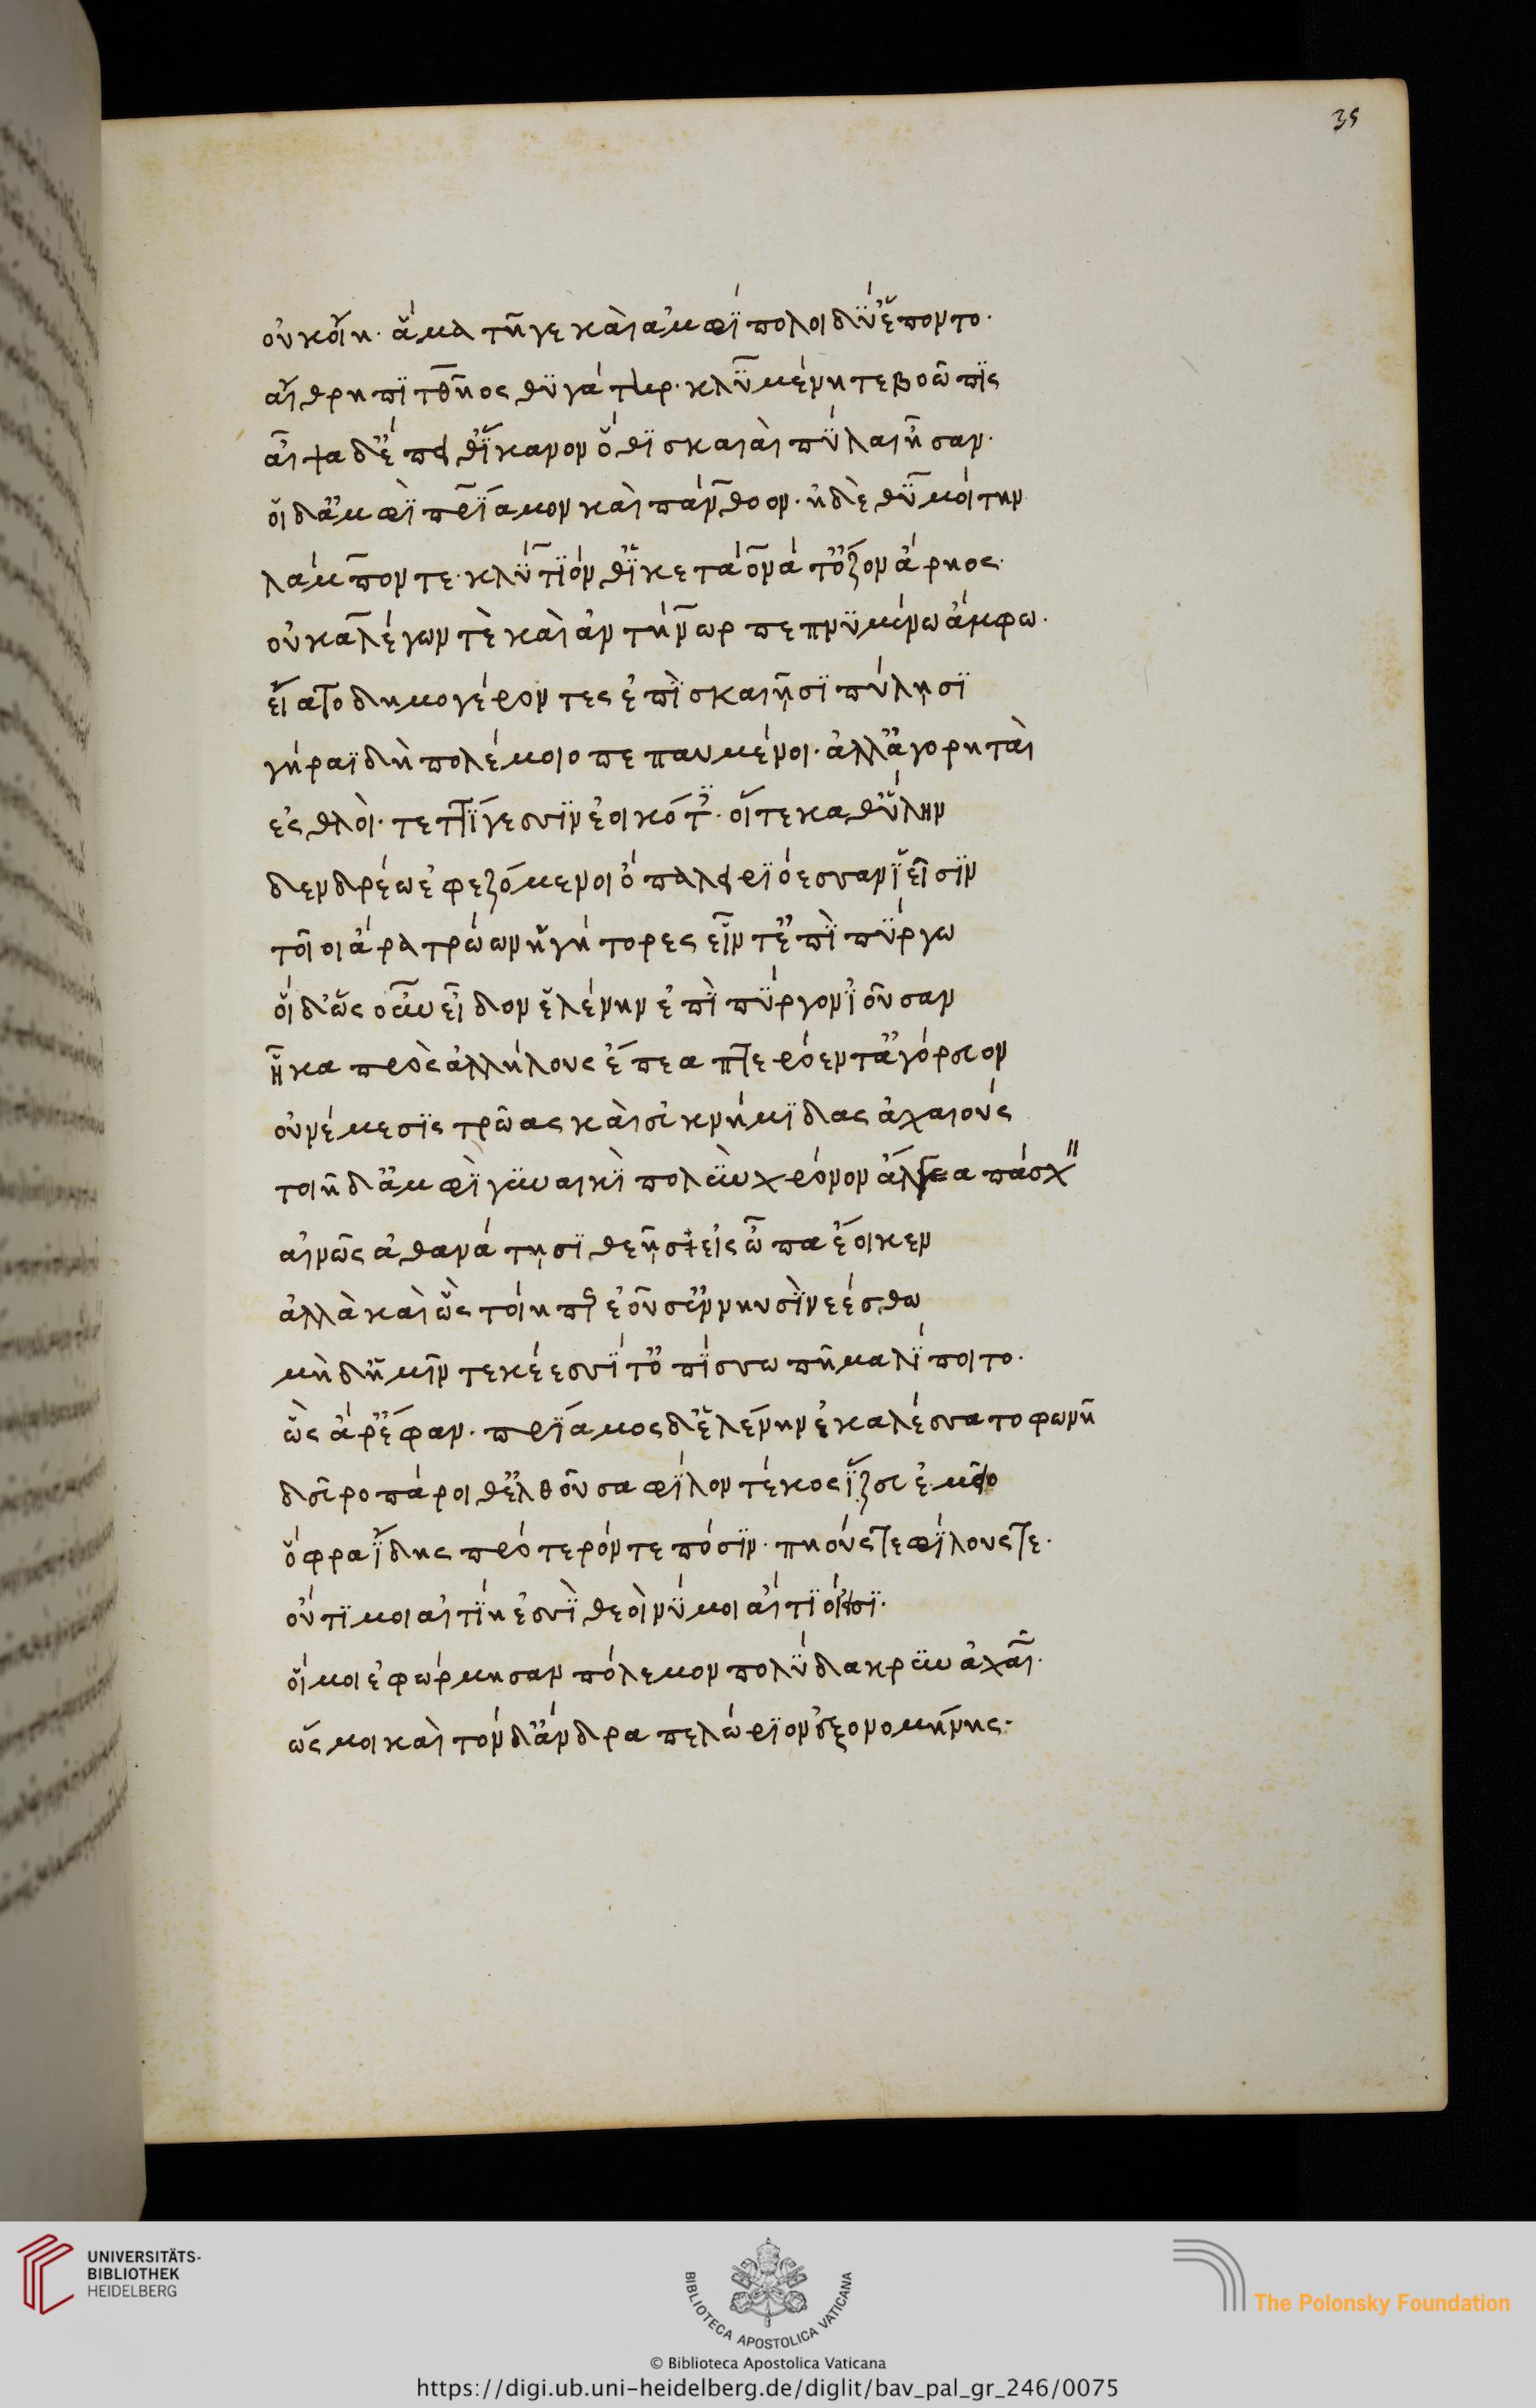 35
οὐκ οἴη. ἅμα τῆγε καὶ ἀμφΐπολοι δύ̈ ἕποντο.
αἴθρη πϊτθῆος θϋγάτηρ. κλϋμένη τε βοῶπϊς
αἶψα δ' ἔπειθ' ἵ̈κανον ὅθϊ σκαιαὶ πύ̈λαι ἦσαν.
οἵ δ' ἀμφὶ̈ πρΐαμον καὶ πάνθοον. ἠδὲ θϋμοίτην
λάμπον τε. κλϋτΐόν θ' ἱ̈κετάονά τ' ὄζον ἄρηος.
οὐκαλέγων τὲ καὶ ἀντήνωρ πεπνϋμένω ἄμφω.
εἵατο δημογέροντες ἐπὶ̈ σκαιῆσϊ πύλησϊ
γήραϊ δὴ πολέμοιο πεπαυμένοι. ἀλλ' ἀγορηταὶ
ἐσθλοὶ. τεττΐγεσσϊν ἐοικότες. οἵτε καθ' ὕλην
δενδρέω ἐφεζόμενοι ὄπα λειρϊόεσσαν ἱ̈εῖσϊν
τοῖοι ἄρα τρώων ἡγήτορες εἷντ' ἐπὶ̈ πύ̈ργω
οἵ δ' ὡς οὖν εἶδον ἑλένην ἐπὶ̈ πύ̈ργον ἰ̈οῦσαν
ἦκα πρὸς ἀλλήλους ἔπεα πτερόεντ' ἀγόρευον
οὐ νέμεσϊς τρῶας καὶ εὐκνήμϊδας ἀχαιούς
τοιῆδ' ἀμφὶ̈ γϋναικὶ̈ πολϋν χρόνον ἄλγεα πάσχειν
αἰνῶς ἀθανάτησϊ θεῆς εἰς ὦπα ἔοικεν
ἀλλὰ καὶ ὧς τοίη περ ἐοῦσ' ἐν νηυσὶ̈ νεέσθω
μὴ δ' ἡμῖν τεκέεσσΐ τ' ὀπΐσσω πῆμα λΐποιτο.
ὧς ἄρ' ἔφαν. πρΐαμος δ' ἑλένην ἐκαλέσσατο φωνῆ
δεῦρο πάροιθ' ἐλθοῦσα φΐλον τέκος ἵ̈ζευ ἐμεῖο
ὄφρα ἴ̈δης πρότερόν τε πόσϊν. πηούς τε φΐλους τε.
οὔ τϊ μοι αἰτΐη ἐσσὶ̈ θεοὶ νύ̈ μοι αἴτϊοι εἰσϊ.
οἵ μοι ἐφώρμησαν πόλεμον πολύ̈δακρϋν ἀχαιῶν.
ὥς μοι καὶ τόνδ' ἄνδρα πελώρϊον ἐξονομήνης.
UNIVERSITÄTS-
BIBLIOTHEK
HEIDELBERG
BIBLIOTECA APOSTOLICA VATICANA
The Polonsky Foundation
© Biblioteca Apostolica Vaticana
https://digi.ub.uni-heidelberg.de/diglit/bav_pal_gr_246/0075